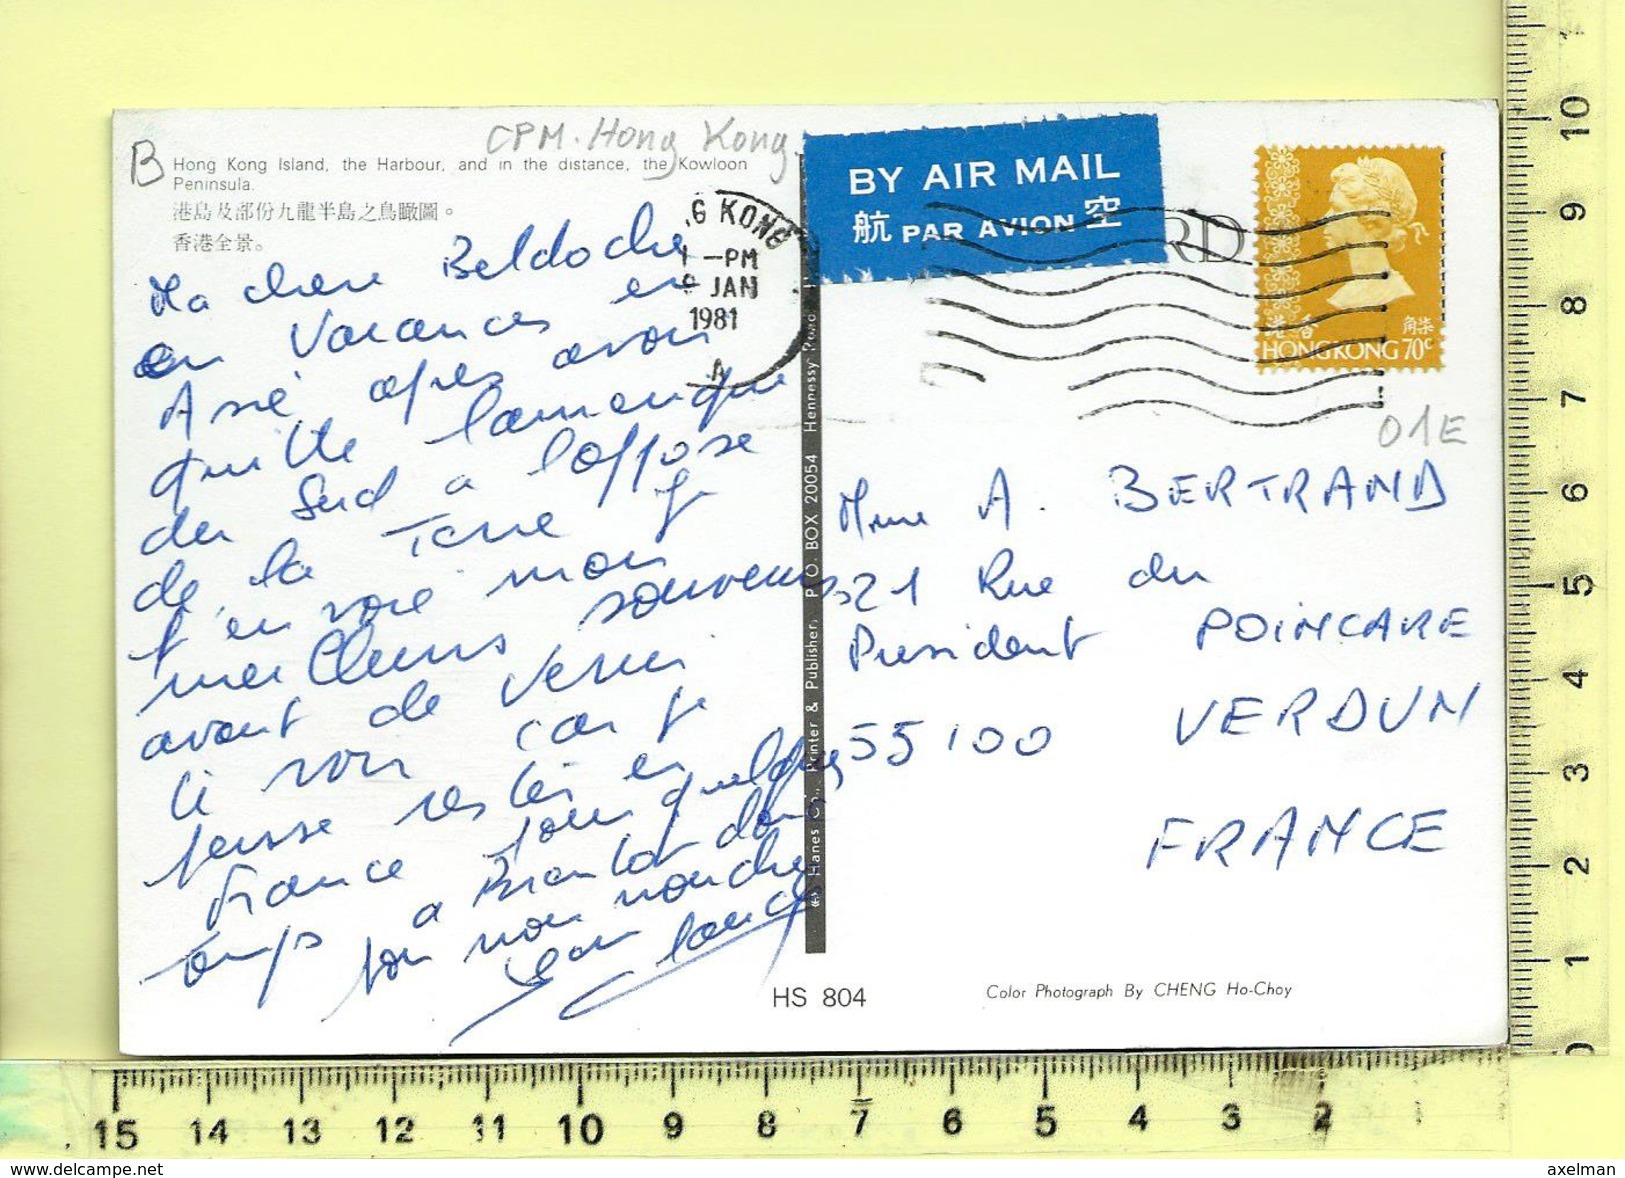 CPM. Hong Kong
B
Hong Kong Island, the Harbour, and in the distance, the Kowloon
Peninsula.
港島及部份九龍半島之鳥瞰圖。
香港全景。
Ma chere Beldoche
en Vacances en
Asie apres avoir
quitte l'amerique
du Sud a l'oppose
de la Terre je
t'envoie mon
meilleurs souvenirs
avant de venir
car je
pense rester en
france pour quelques
temps a
Jean Claude
G KONG
1 -PM
JAN
1981
A
BY AIR MAIL
航 PAR AVION 空
RD
香港
HONG KONG 70c
01E
Mme A. BERTRAND
21 Rue du
President POINCARE
55100 VERDUN
FRANCE
Hanes Co., Printer & Publisher, P.O. BOX 20054 Hennessy Road
HS 804
Color Photograph By CHENG Ho-Choy
10
9
8
7
6
5
4
3
2
1
0
15 14 13 12 11 10 9 8 7 6 5 4 3 2
www.delcampe.net
axelman